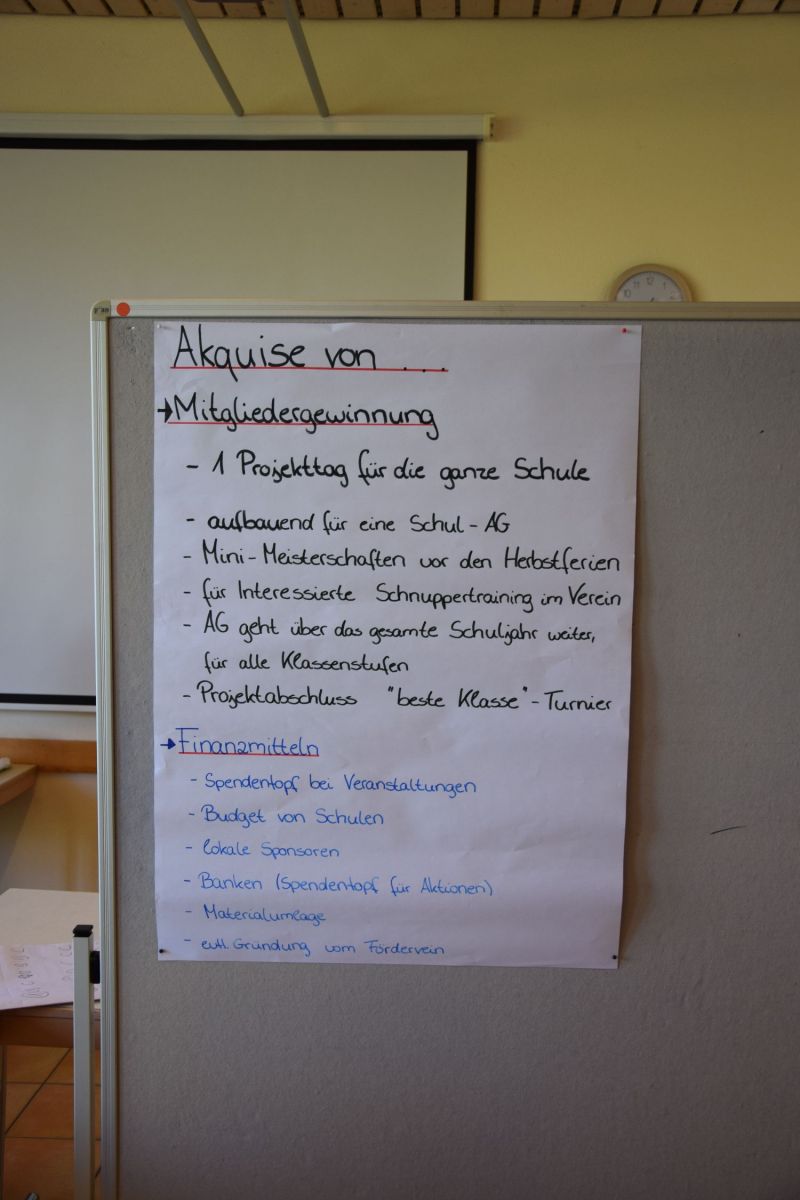 Akquise von ...
→ Mitgliedergewinnung
- 1 Projekttag für die ganze Schule
- aufbauend für eine Schul-AG
- Mini-Meisterschaften vor den Herbstferien
- für Interessierte Schnuppertraining im Verein
- AG geht über das gesamte Schuljahr weiter,
für alle Klassenstufen
- Projektabschluss "beste Klasse"-Turnier
→ Finanzmitteln
- Spendentopf bei Veranstaltungen
- Budget von Schulen
- lokale Sponsoren
- Banken (Spendentopf für Aktionen)
- Materialumlage
- evtl. Gründung vom Förderverein